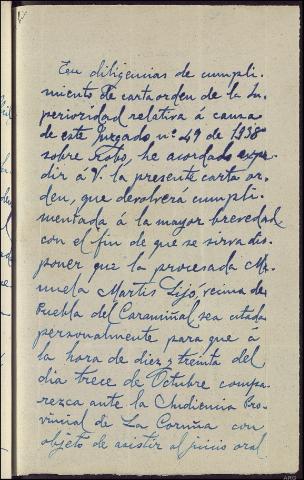 En diligencias de cumpli-
miento de carta orden de la Su-
perioridad relativa á causa
de este Juzgado nº 49 de 1938
sobre robo, he acordado expe-
dir á V. la presente carta or-
den, que devolverá cumpli-
mentada á la mayor brevedad
con el fin de que se sirva dis-
poner que la procesada Ma-
nuela Martis Lijó, vecina de
Puebla del Caramiñal sea citada
personalmente para que á
la hora de diez y treinta del
dia trece de Octubre compa-
rezca ante la Audiencia Pro-
vincial de La Coruña con
objeto de asistir al juicio oral